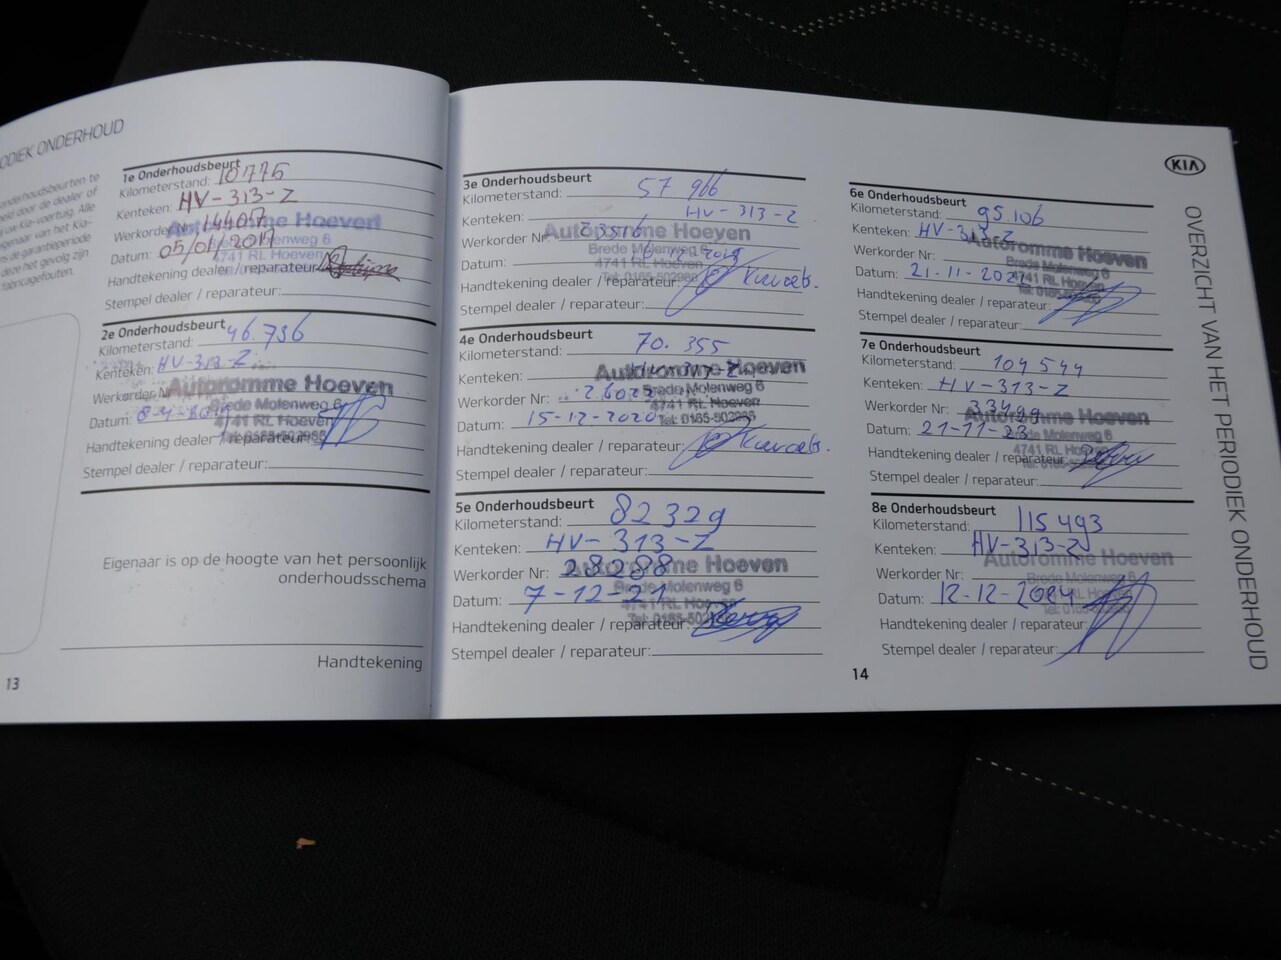 ODIEK ONDERHOUD
onderhoudsbeurten te
door de dealer of
uw Kia-voertuig. Alle
eigenaar van het Kia-
de garantieperiode
deze het gevolg zijn
fabricagefouten.
1e Onderhoudsbeurt
Kilometerstand: 10775
Kenteken: HV-313-Z
Werkorder Nr:
Datum:
Handtekening dealer / reparateur:
Stempel dealer / reparateur:
Autoromme Hoeven
4741 RL Hoeven
2e Onderhoudsbeurt
Kilometerstand: 46.736
Kenteken: HV-313-Z
Werkorder Nr
Datum:
Handtekening dealer / reparateur:
Stempel dealer / reparateur:
Autoromme Hoeven
Brede Molenweg 6
4741 RL Hoeven
Tel: 0165-502986
Eigenaar is op de hoogte van het persoonlijk
onderhoudsschema
Handtekening
13
3e Onderhoudsbeurt
Kilometerstand: 57 966
Kenteken: HV-313-Z
Werkorder Nr: 23516
Datum:
Handtekening dealer / reparateur:
Stempel dealer / reparateur:
Autoromme Hoeven
Brede Molenweg 6
4741 RL Hoeven
Tel: 0165-502986
4e Onderhoudsbeurt
Kilometerstand: 70.355
Kenteken:
Werkorder Nr:
Datum: 15-12-2020
Handtekening dealer / reparateur:
Stempel dealer / reparateur:
Autoromme Hoeven
Brede Molenweg 6
4741 RL Hoeven
Tel: 0165-502986
5e Onderhoudsbeurt
Kilometerstand: 82329
Kenteken: HV-313-Z
Werkorder Nr: 28288
Datum: 7-12-21
Handtekening dealer / reparateur:
Stempel dealer / reparateur:
Autoromme Hoeven
Brede Molenweg 6
4741 RL Hoeven
Tel: 0165-502986
KIA
6e Onderhoudsbeurt
Kilometerstand: 95.106
Kenteken: HV-313-Z
Werkorder Nr:
Datum: 21-11-202
Handtekening dealer / reparateur:
Stempel dealer / reparateur:
Autoromme Hoeven
Brede Molenweg 6
4741 RL Hoeven
Tel: 0165-502986
7e Onderhoudsbeurt
Kilometerstand: 104544
Kenteken: HV-313-Z
Werkorder Nr: 33499
Datum: 21-11-23
Handtekening dealer / reparateur:
Stempel dealer / reparateur:
Autoromme Hoeven
Brede Molenweg 6
4741 RL Hoeven
8e Onderhoudsbeurt
Kilometerstand: 115493
Kenteken: HV-313-Z
Werkorder Nr:
Datum: 12-12-2024
Handtekening dealer / reparateur:
Stempel dealer / reparateur:
Autoromme Hoeven
Brede Molenweg 6
4741 RL Hoeven
Tel: 0165-502986
14
OVERZICHT VAN HET PERIODIEK ONDERHOUD